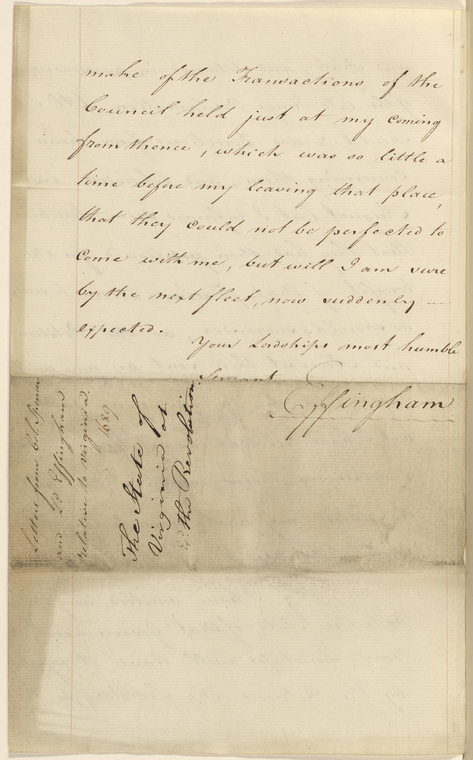 make of the Transactions of the
Council held just at my coming
from thence, which was so little a
time before my leaving that place,
that they could not be perfected to
come with me, but will I am sure
by the next fleet, now suddenly —
expected.
Your Lordships most humble
Servant
Effingham
Letters from Col. Spencer
and Ld. Effingham
relative to Virginia.
1689
The State of
Virginia at
the Revolution